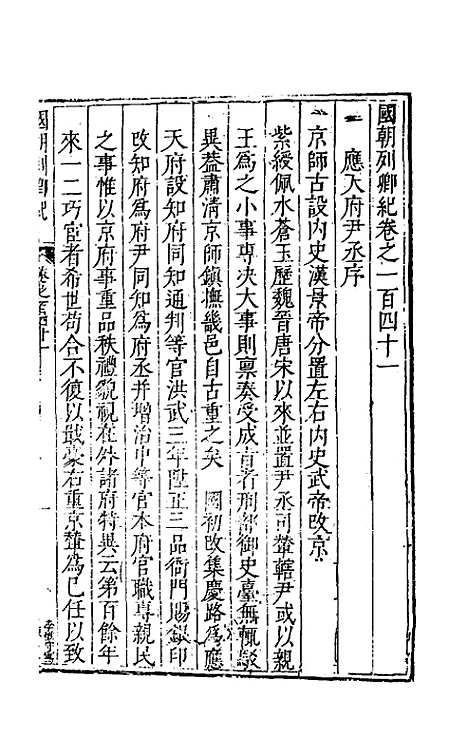 國朝列卿紀卷之一百四十一
應天府尹丞序
京師古設內史漢景帝分置左右內史武帝改京
紫綬佩水蒼玉歷魏晉唐宋以來並置尹丞司輦轄尹或以親
王為之小事專決大事則禀奏受成言者刑部御史臺無輒駁
異葢肅清京師鎮撫畿邑自古重之矣　國初改集慶路為應
天府設知府同知通判等官洪武三年陞正三品衙門賜銀印
改知府為府尹同知為府丞并增治中等官本府官職專親民
之事惟以京府事重品秩禮貌視在外諸府特異云第百餘年
來一二巧宦者希世苟合不復以戢豪右重京輦為已任以致
國朝列卿紀
卷之一百四十一